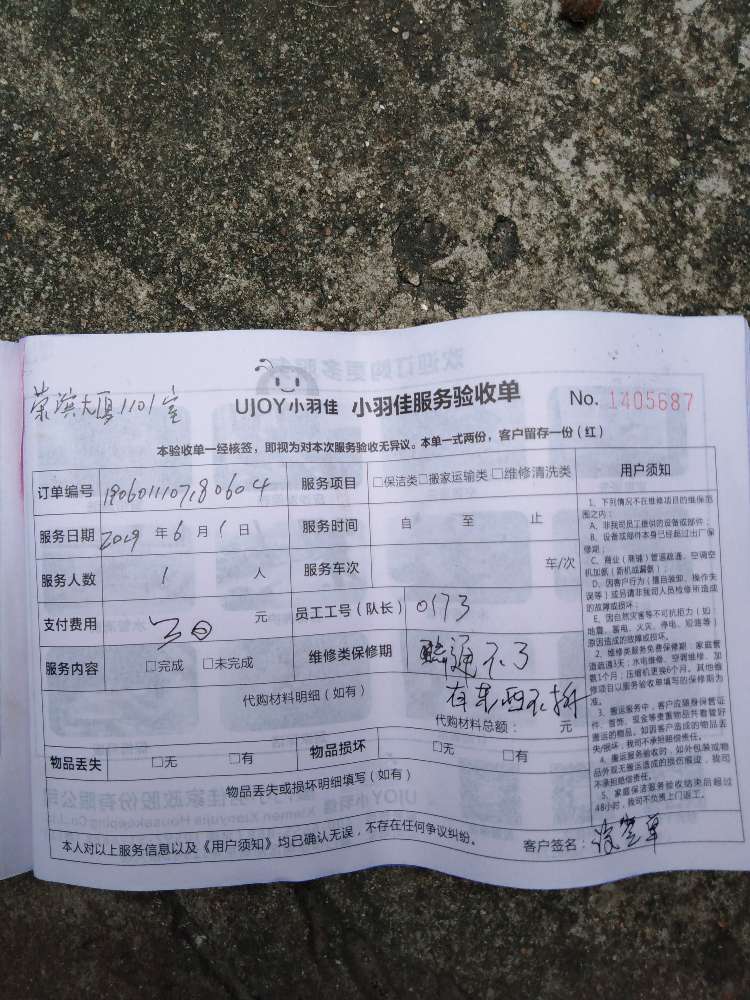 荣滨大厦1101室
UJOY小羽佳 小羽佳服务验收单 No. 1405687
本验收单一经核签，即视为对本次服务验收无异议。本单一式两份，客户留存一份（红）
订单编号 190601110780604 服务项目 □保洁类□搬家运输类□维修清洗类 用户须知
服务日期 2019 年 6 月 1 日 服务时间 自 至 止
服务人数 1 人 服务车次 车/次
支付费用 元 员工工号（队长） 0173
服务内容 □完成 □未完成 维修类保修期 疏通不了
有东西不拆
代购材料明细（如有） 代购材料总额： 元
物品丢失 □无 □有 物品损坏 □无 □有
物品丢失或损坏明细填写（如有）
本人对以上服务信息以及《用户须知》均已确认无误，不存在任何争议纠纷。 客户签名：
1、下列情况不在维修项目的维保范
围之内：
A、非我司员工提供的设备或部件；
B、设备或部件本身已经超过出厂保
修期；
C、商业（商铺）管道疏通、空调空
机加氨（新机或漏氨）；
D、因客户行为（擅自装卸、操作失
误等）或另请非我司人员检修所造成
的故障或损坏；
E、因自然灾害等不可抗拒力（如：
地震、雷电、火灾、停电、短路等）
原因造成的故障或损坏。
2、维修类服务免费保修期：家庭管
道疏通3天；水电维修、空调维修、加
氨1个月；压缩机更换6个月。其他维
修项目以服务验收单填写的保修期为
准。
3、搬运服务中，客户应随身保管证
件、首饰、现金等贵重物品并看管好
搬运的物品。如因客户造成的物品丢
失/损坏，我司不承担赔偿责任。
4、搬运服务验收时，如外包装或物
品外观无搬运造成的损伤痕迹，我司
不承担赔偿责任。
5、家庭保洁服务验收结束后超过
48小时，我司不负责上门返工。